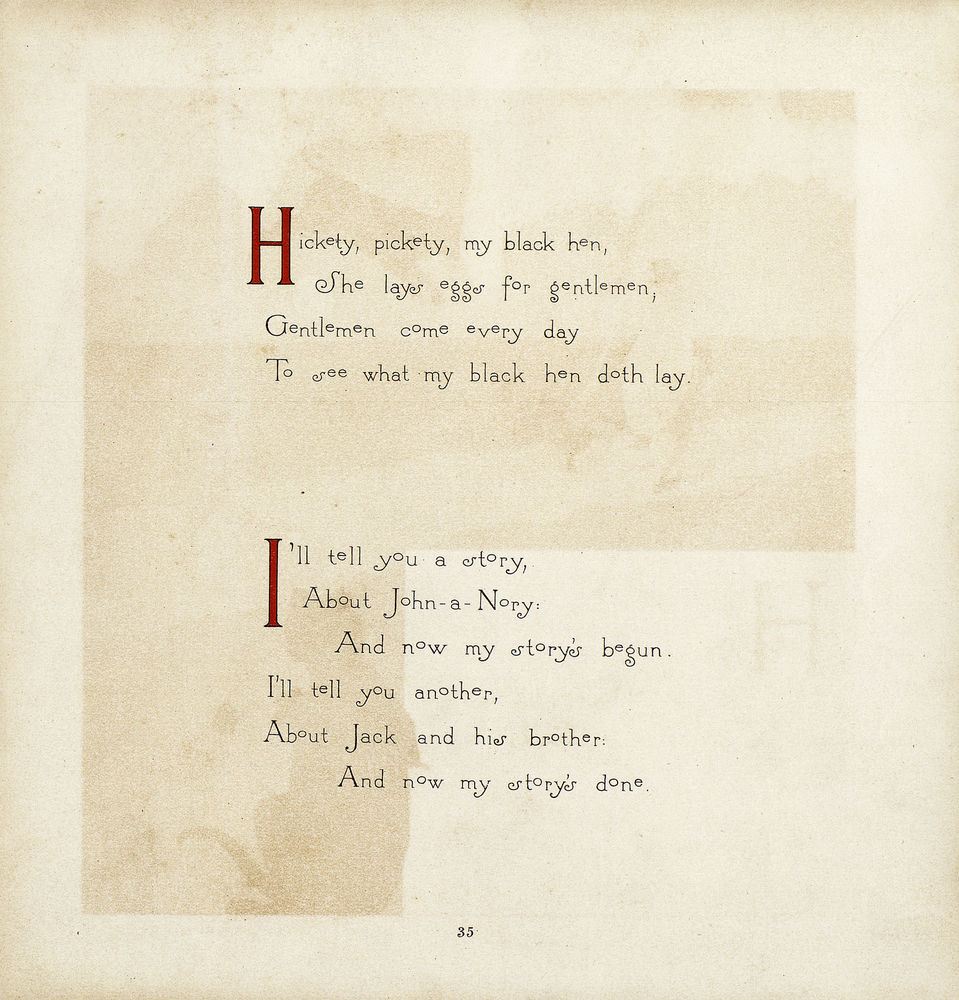 Hickety, pickety, my black hen,
She lays eggs for gentlemen;
Gentlemen come every day
To see what my black hen doth lay.
I'll tell you a story,
About John-a-Nory:
And now my story's begun.
I'll tell you another,
About Jack and his brother:
And now my story's done.
35